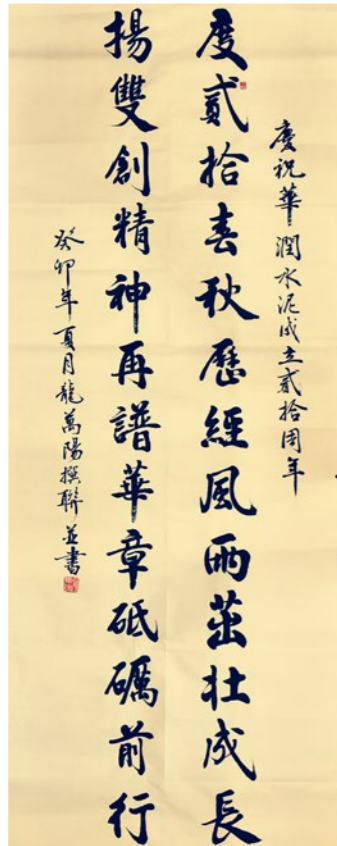 慶祝華潤水泥成立貳拾周年
度貳拾春秋歷經風雨茁壯成長
揚雙創精神再譜華章砥礪前行
癸卯年夏月龍萬陽撰聯並書